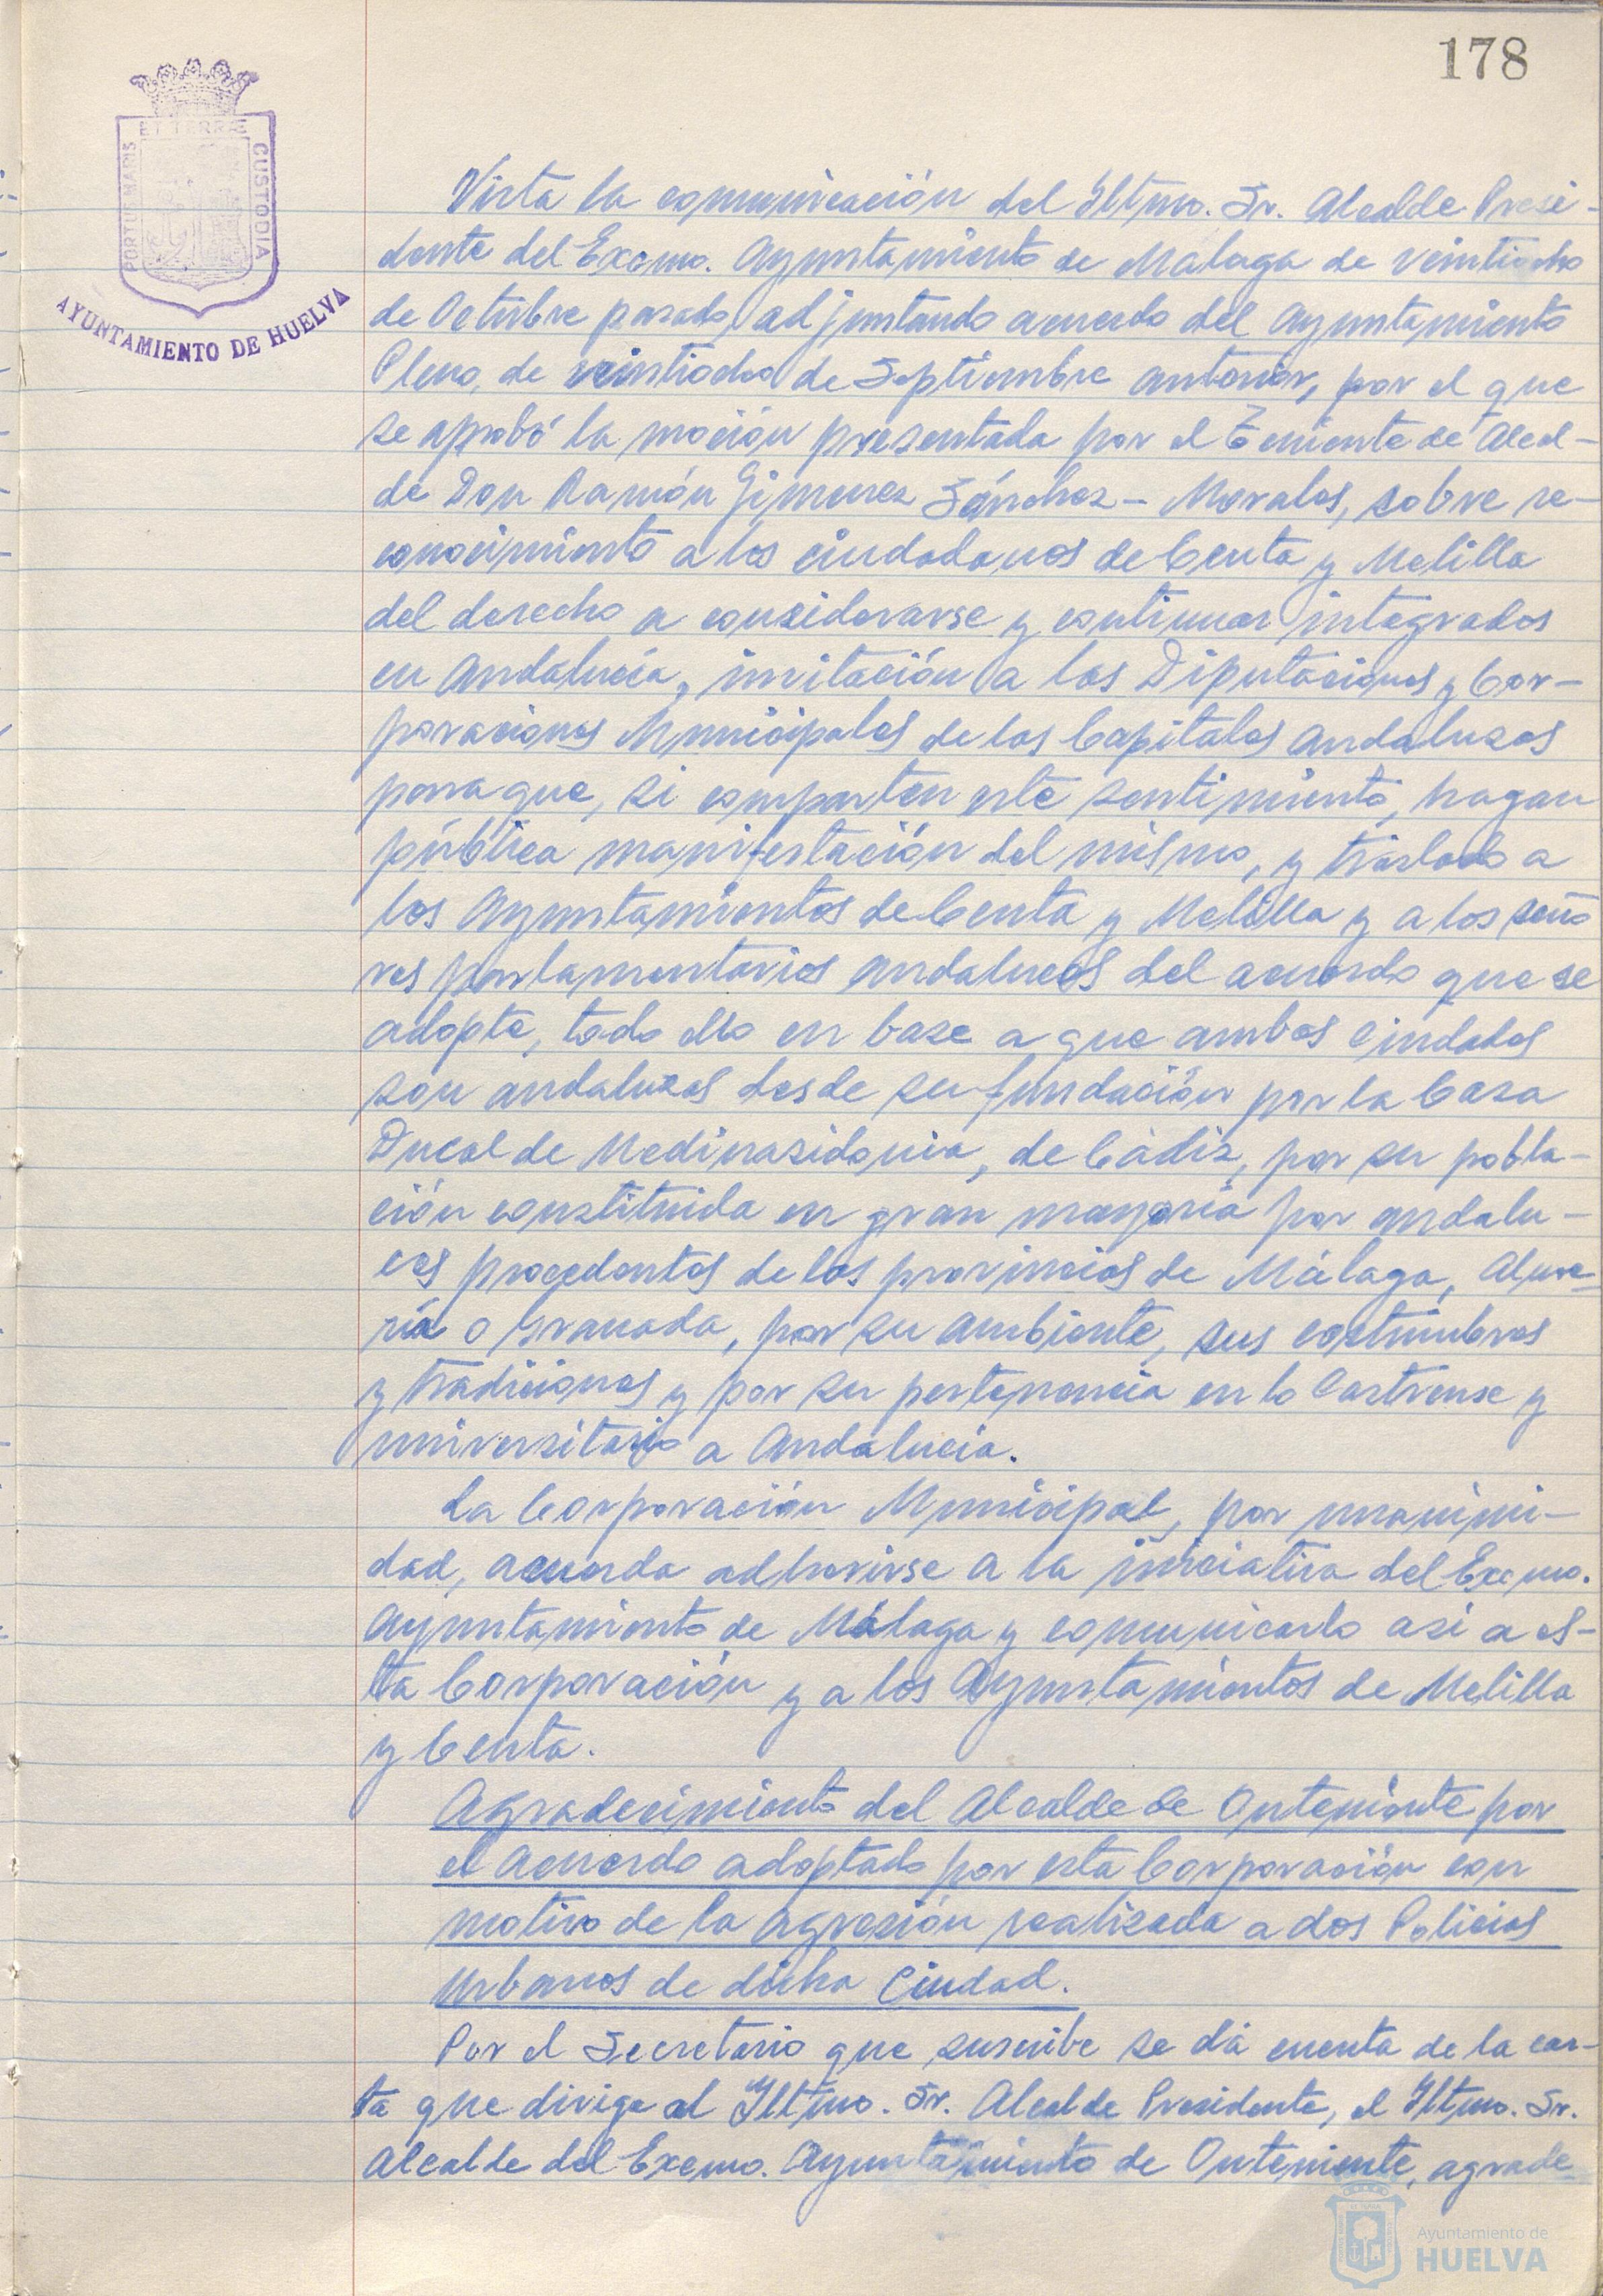 178
PORTUS MARIS
ET TERRÆ
CUSTODIA
AYUNTAMIENTO DE HUELVA
Vista la comunicación del Iltmo. Sr. Alcalde Presi-
dente del Excmo. Ayuntamiento de Malaga de veintiocho
de Octubre pasado, adjuntando acuerdo del Ayuntamiento
Pleno, de veintiocho de Septiembre anterior, por el que
se aprobó la moción presentada por el Teniente de Alcal-
de Don Ramón Gimenez Sánchez-Morales, sobre re-
conocimiento a los ciudadanos de Ceuta y Melilla
del derecho a considerarse y continuar integrados
en Andalucía, invitación a las Diputaciones y Cor-
poraciones Municipales de las Capitales andaluzas
para que, si comparten este sentimiento, hagan
pública manifestación del mismo, y traslado a
los Ayuntamientos de Ceuta y Melilla y a los seño
res parlamentarios andaluces del acuerdo que se
adopte, todo ello en base a que ambas Ciudades
son andaluzas desde su fundación por la Casa
Ducal de Medinasidonia, de Cádiz, por su pobla-
ción constituida en gran mayoria por andalu-
ces procedentes de las provincias de Málaga, Alme-
ría o Granada, por su ambiente, sus costumbres
y tradiciones y por su pertenencia en lo Castrense y
universitario a Andalucia.
La Corporación Municipal, por unanimi-
dad, acuerda adherirse a la iniciativa del Excmo.
Ayuntamiento de Málaga y comunicarlo asi a es-
ta Corporación y a los Ayuntamientos de Melilla
y Ceuta.
Agradecimiento del Alcalde de Onteniente por
el acuerdo adoptado por esta Corporación con
motivo de la agresión realizada a dos Policias
Urbanos de dicha Ciudad.
Por el Secretario que suscribe se dá cuenta de la car-
ta que dirige al Iltmo. Sr. Alcalde Presidente, el Iltmo. Sr.
Alcalde del Excmo. Ayuntamiento de Onteniente, agrade-
Ayuntamiento de
HUELVA